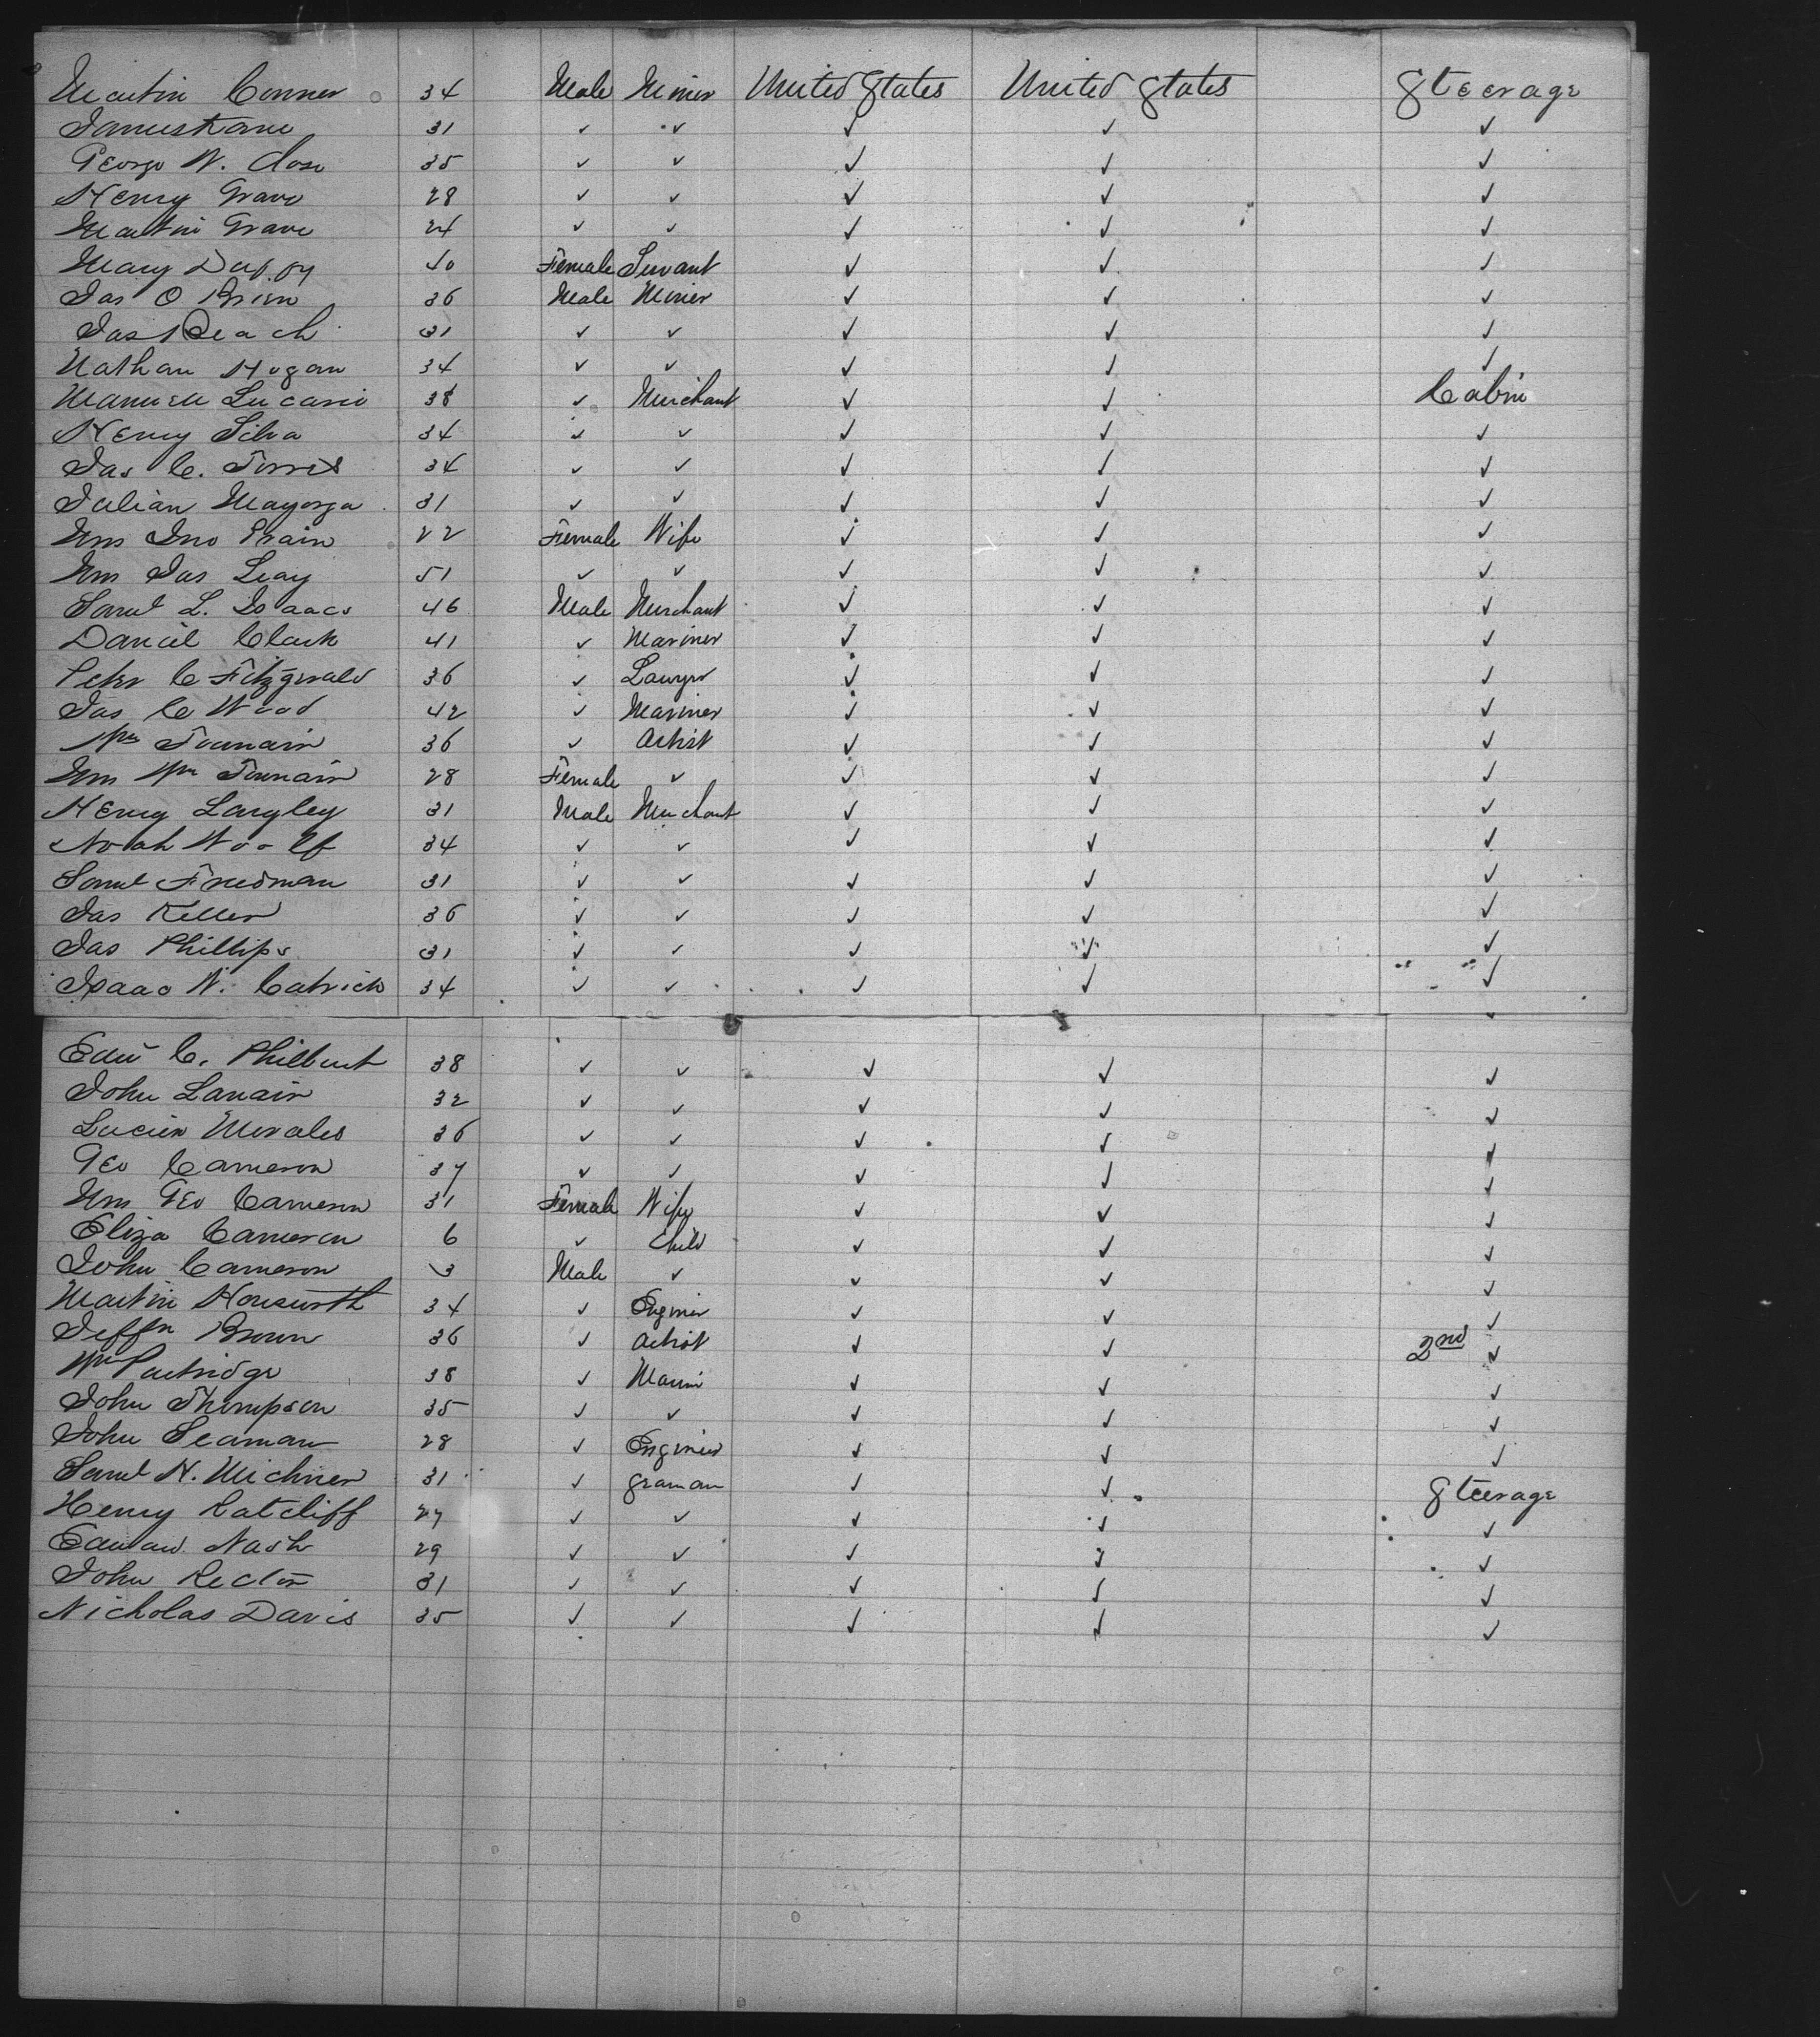 Martin Conner 34 Male Miner United States United States Steerage
James Kane 31 ✓ ✓ ✓ ✓ ✓
George W. Close 35 ✓ ✓ ✓ ✓ ✓
Henry Grave 28 ✓ ✓ ✓ ✓ ✓
Martin Grave 24 ✓ ✓ ✓ ✓ ✓
Mary Duffy 40 Female Servant ✓ ✓ ✓
Jas O Brien 36 Male Miner ✓ ✓ ✓
Jas Beach 31 ✓ ✓ ✓ ✓ ✓
Nathan Hogan 34 ✓ ✓ ✓ ✓ ✓
Manuel 38 ✓ Merchant ✓ ✓ Cabin
Henry Silva 34 ✓ ✓ ✓ ✓ ✓
Jas C. Torres 34 ✓ ✓ ✓ ✓ ✓
Julian Mayorga 31 ✓ ✓ ✓ ✓ ✓
Mrs Jno Prain 22 Female Wife ✓ ✓ ✓
Mrs Jas Leay 51 ✓ ✓ ✓ ✓ ✓
Saml L. Isaacs 46 Male Merchant ✓ ✓ ✓
Daniel Clark 41 ✓ Mariner ✓ ✓ ✓
Peter C Fitzgerald 36 ✓ Lawyer ✓ ✓ ✓
Jas C Wood 42 ✓ Mariner ✓ ✓ ✓
Wm 36 ✓ Artist ✓ ✓ ✓
Mrs Wm 28 Female ✓ ✓ ✓ ✓
Henry Langley 31 Male Merchant ✓ ✓ ✓
Noah Woolf 34 ✓ ✓ ✓ ✓ ✓
Saml Friedman 31 ✓ ✓ ✓ ✓ ✓
Jas Keller 36 ✓ ✓ ✓ ✓ ✓
Jas Phillips 31 ✓ ✓ ✓ ✓ ✓
Isaac N. 34 ✓ ✓ ✓ ✓ ✓
Edw C. Philbert 38 ✓ ✓ ✓ ✓ ✓
John Lanain 32 ✓ ✓ ✓ ✓ ✓
Lucien Morales 36 ✓ ✓ ✓ ✓ ✓
Geo Cameron 37 ✓ ✓ ✓ ✓ ✓
Mrs Geo Cameron 31 Female Wife ✓ ✓ ✓
Eliza Cameron 6 ✓ Child ✓ ✓ ✓
John Cameron 3 Male ✓ ✓ ✓ ✓
Martin 34 ✓ Engineer ✓ ✓ ✓
Jeffn Brown 36 ✓ Artist ✓ ✓ 2nd ✓
Wm Partridge 38 ✓ ✓ ✓ ✓
John Thompson 35 ✓ ✓ ✓ ✓ ✓
John Seaman 28 ✓ Engineer ✓ ✓ ✓
Saml N. Michner 31 ✓ ✓ ✓ Steerage
Henry Ratcliff 27 ✓ ✓ ✓ ✓ ✓
Edward Nash 29 ✓ ✓ ✓ ✓ ✓
John Rector 31 ✓ ✓ ✓ ✓ ✓
Nicholas Davis 35 ✓ ✓ ✓ ✓ ✓